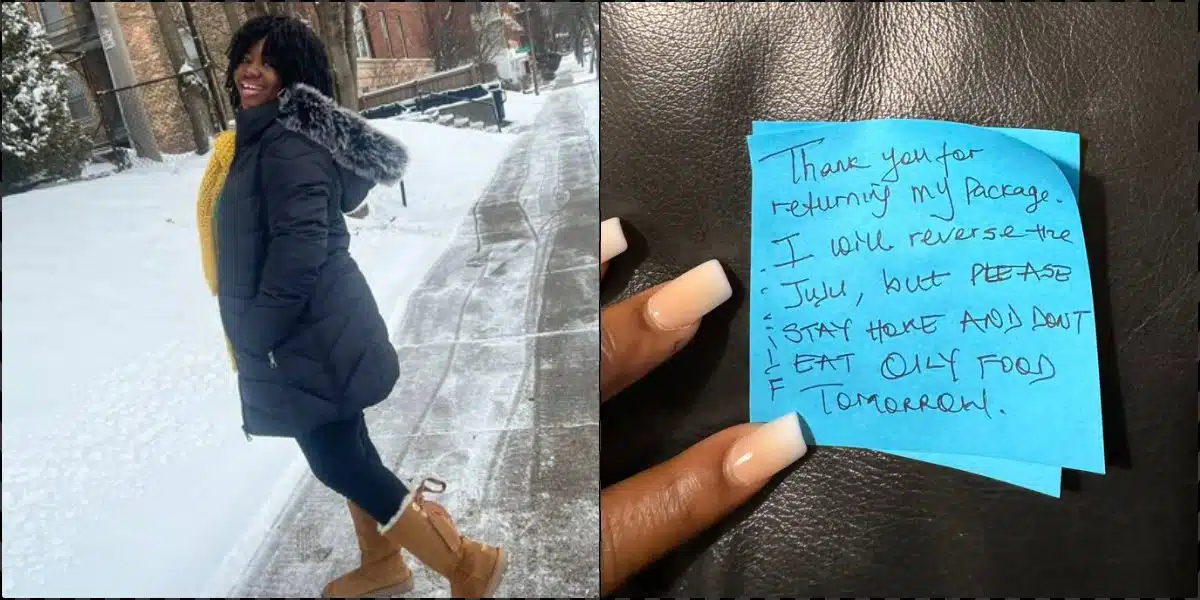 Thank you for
returning my Package.
I will reverse the
Juju, but PLEASE
STAY HOME AND DONT
EAT OILY FOOD
TOMORROW.